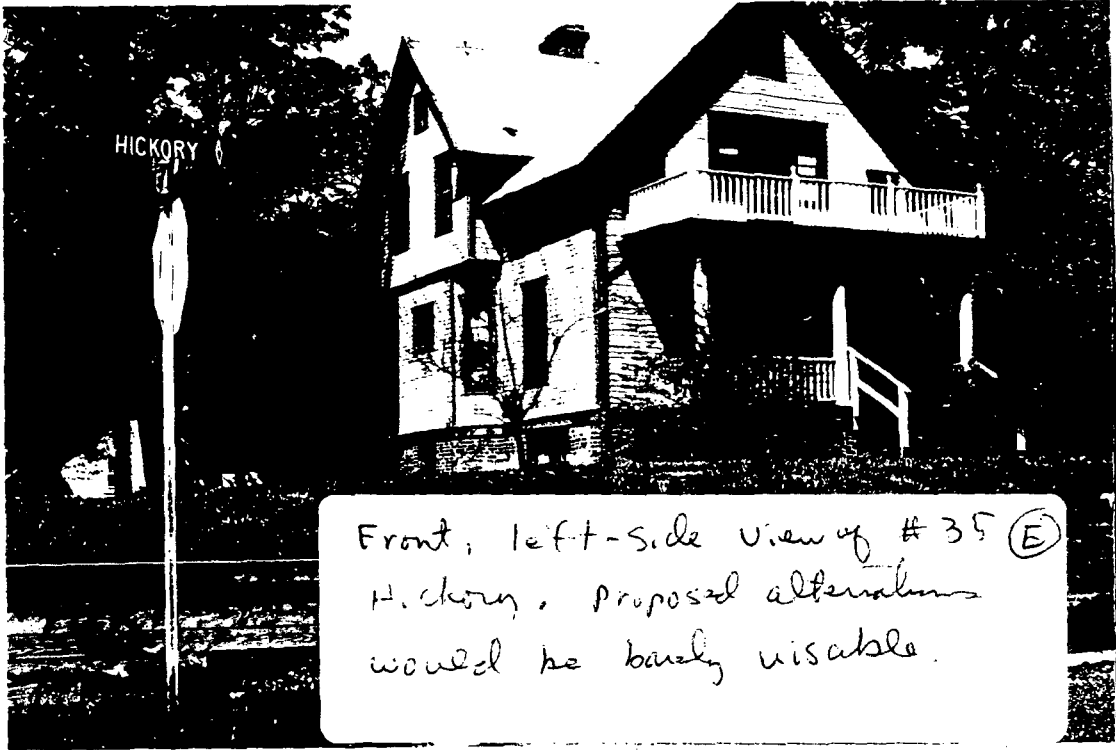 HICKORY
Front, left-side view of #35 Ⓔ
Hickory. Proposed alterations
would be barely visable.